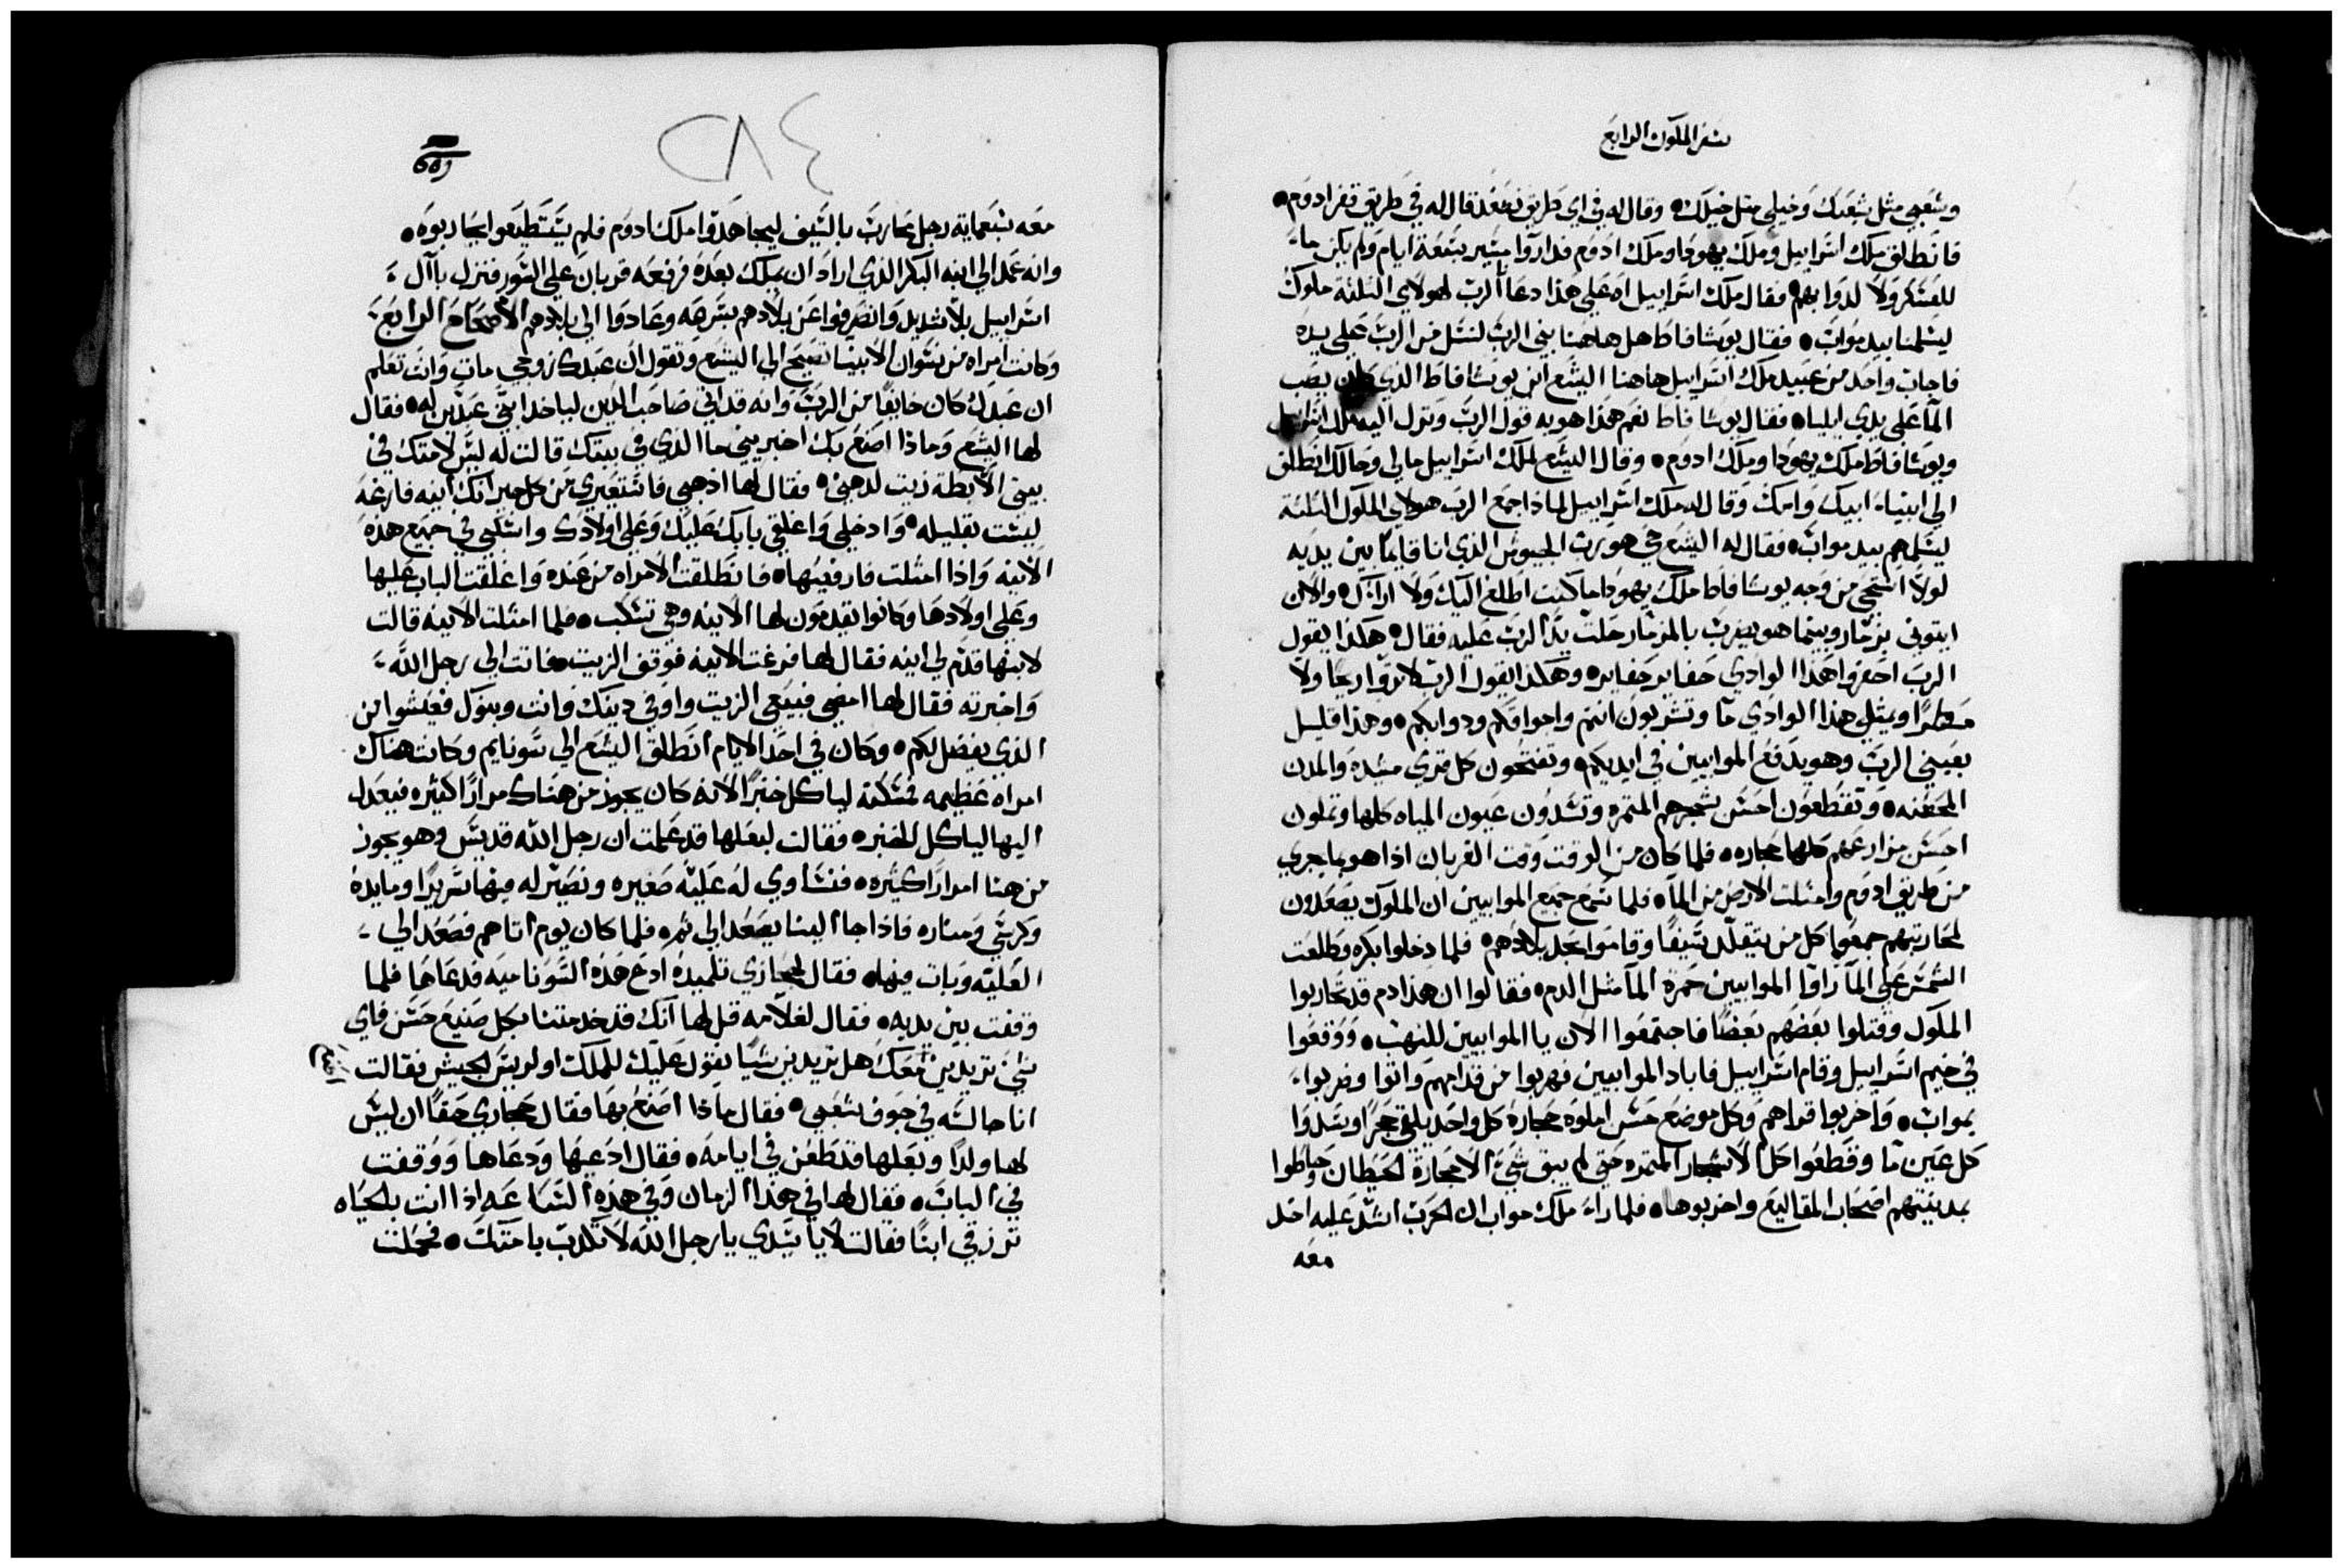 سفر الملوك الرابع
وشعبي مثل شعبك وخيلي مثل خيلك • وقال له في اي طريق نصعد قال له في طريق قفر ادوم •
فانطلق ملك اسراييل وملك يهودا وملك ادوم فداروا مسير سبعة ايام ولم يكن ماء
للعسكر ولا لدوابهم • فقال ملك اسراييل اه علي هذا دعانا الرب لهولاي الثلثة ملوك
ليسلمنا بيد مواب • فقال يوشافاط هل هاهنا نبي الرب لنسل من الرب علي يده
فاجاب واحد من عبيد ملك اسراييل هاهنا اليشع ابن يوشافاط الذي كان يصب
الما على يدي ايليا • فقال يوشافاط نعم هذا هو به قول الرب ونزل اليه ملك اسراييل
ويوشافاط ملك يهودا وملك ادوم • وقال اليشع لملك اسراييل مالي ومالك انطلق
الي انبياء ابيك وامك وقال له ملك اسراييل لماذا جمع الرب هولاي الملوك الثلثة
ليسلمهم بيد مواب • فقال له اليشع حي هو رب الجيوش الذي انا قايما بين يديه
لولا استحي من وجه يوشافاط ملك يهودا ما كنت اطلع اليك ولا اراك • والان
ايتوني بزمار وبينما هو يضرب بالمزمار حلت يد الرب عليه فقال • هكذا يقول
الرب احفروا هذا الوادي حفاير حفاير • وهكذا يقول الرب لا تروا ريحا ولا
مطرا ويمتلي هذا الوادي ما وتشربون انتم واحوافكم ودوابكم • وهذا قليل
بعيني الرب وهو يدفع الموابيين في ايديكم • وتفتحون كل قري مشيده والمدن
المحصنه • وتقطعون احسن شجرهم المثمره وتسدون عيون المياه كلها وتملون
احسن مزارعهم كلها حجاره • فلما كان من الوقت وقت القربان اذا هو ما يجري
من طريق ادوم وامتلت الارض من الما • فلما سمع جميع الموابيين ان الملوك يصعدون
لمحاربتهم جمعوا كل من يتقلد سيفا وقاموا بحد بلادهم • فلما دخلوا بكره وطلعت
الشمس علي الما راوا الموابيين حمرة الما مثل الدم • فقالوا ان هذا دم قد تحاربوا
الملوك وقتلوا بعضهم بعضا فاجتمعوا الان يا الموابيين للنهب • ووقعوا
في خيم اسراييل وقام اسراييل فاباد الموابيين فهربوا من قدامهم واتوا وضربوا
بمواب • واخربوا قراهم وكل موضع حسن املوه حجاره كل واحد يلقي حجرا وسدوا
كل عين ما وقطعوا كل الاشجار المثمره حتي لم يبق شيء الا حجارة الحيطان وحاطوا
بمدينتهم اصحاب المقاليع واخربوها • فلما راء ملك مواب ان الحرب اشتد عليه اخذ
معه
٢٨٤
معه سبعماية رجل محارب بالسيف ليجاهدوا ملك ادوم فلم يستطيعوا يحاربوه •
وانه عمد الي ابنه البكر الذي اراد ان يملك بعده فرفعه قربان علي السور فنزل باآل
اسراييل بلا شديد وانصرفوا عن بلادهم بسرعه وعادوا الي بلادهم الاصحاح الرابع
وكانت امراه من نسوان الانبيا تصيح الي اليشع وتقول ان عبدك زوجي مات وانت تعلم
ان عبدك كان خايفا من الرب وانه قد اتي صاحب الدين لياخد ابني عبدين له • فقال
لها اليشع وماذا اصنع بك اخبريني ما الذي في بيتك قالت له ليس لامتك في
بيتي الا بطة زيت لدهني • فقال لها اذهبي فاستعيري من كل جيرانك انيه فارغه
ليست بقليله • وادخلي واغلقي بابك عليك وعلي اولادك واسكبي في جميع هذه
الانيه واذا امتلت فارفعيها • فانطلقت الامراه من عنده واغلقت الباب عليها
وعلى اولادها وكانوا يقدمون لها الانيه وهي تسكب • فلما امتلت الانيه قالت
لابنها قدم لي انيه فقال لها فرغت الانيه فوقف الزيت • فاتت الي رجل الله
واخبرته فقال لها امضي فبيعي الزيت واوفي دينك وانت وبنوك فعيشوا من
الذي يفضل لكم • وكان في احد الايام انطلق اليشع الي سونايم وكانت هناك
امراه عظيمه فمسكته لياكل خبزا لانه كان يجوز من هناك مرارا كثيره فيعدل
اليها لياكل الخبز • فقالت لبعلها قد علمت ان رجل الله قديس وهو يجوز
من هنا امرارا كثيره • فنساوي له عليه صغيره ونصير له فيها سريرا ومايده
وكرسي ومناره فاذا جا الينا يصعد الي ثم • فلما كان يوم اتاهم فصعد الي
العليه وبات فيها • فقال لجحازي تلميده ادع هذه السوناميه فدعاها فلما
وقفت بين يديه • فقال لغلامه قل لها انك قد خدمتنا بكل صنيع حسن فاي
شي تريدين نصنع معك هل تريدين شيا نقول عليك للملك او لريس الجيش فقالت
انا جالسه في جوف شعبي • فقال ماذا اصنع بها فقال جحازي حقا ان ليس
لها ولدا وبعلها قد طعن في ايامه • فقال ادعها ودعاها ووقفت
في الباب • فقال لها في هذا الزمان وفي هذه الساعه اذا انت بالحياه
ترزقي ابنا فقالت لا يا سيدي يا رجل الله لا تكدب بامتك • فحملت